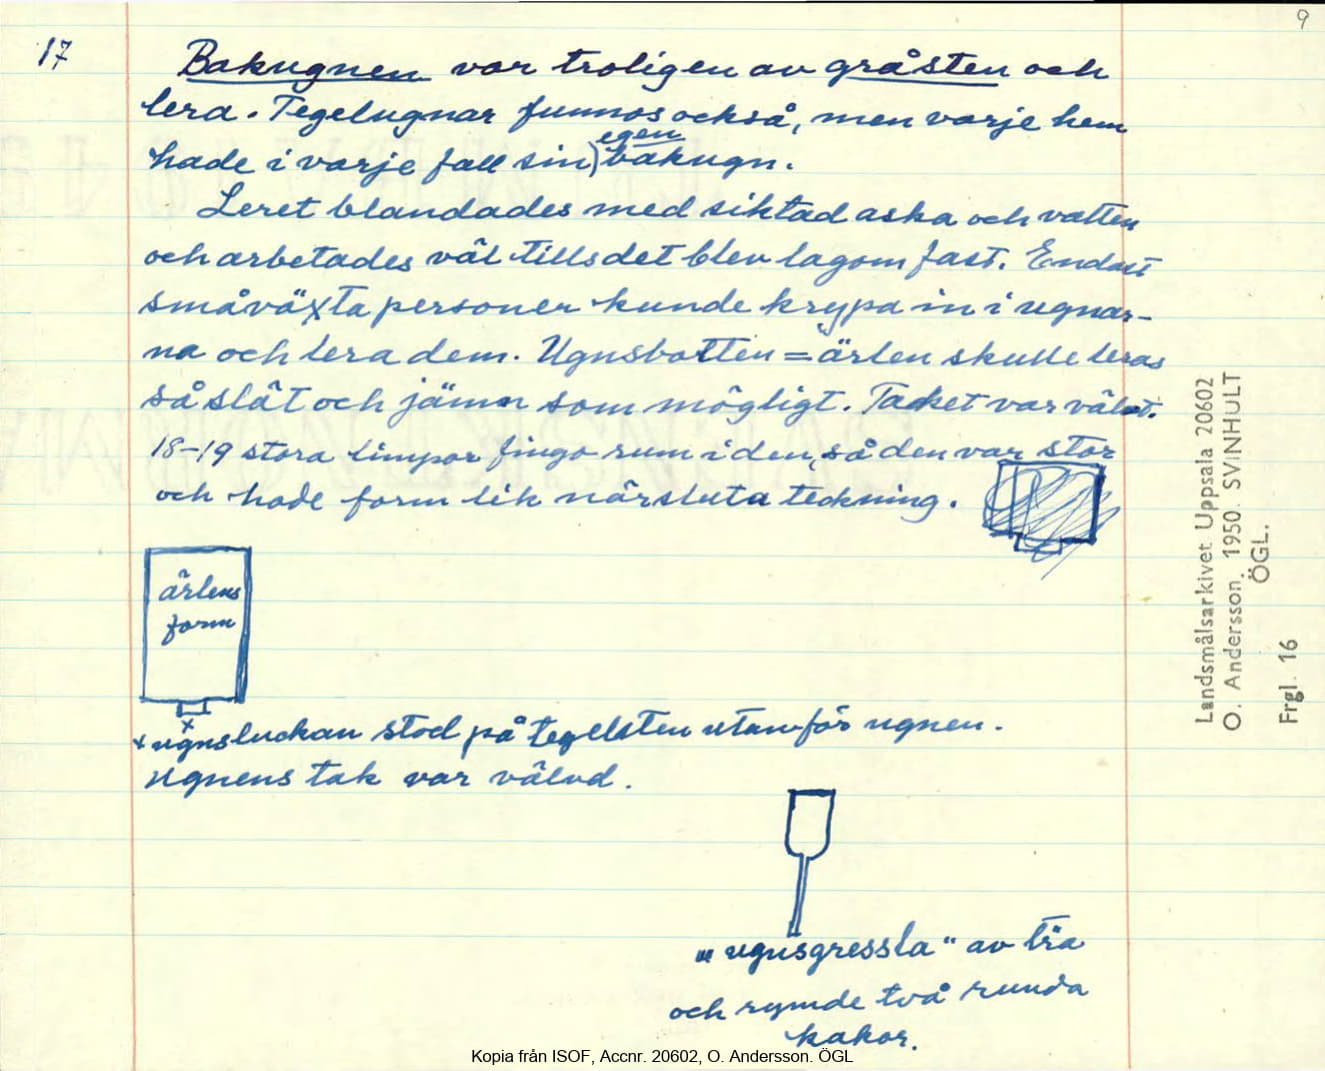 9
17 Bakugnen var troligen av gråsten och
lera. Tegelugnar funnos också, men varje hem
hade i varje fall sin egen bakugn.
Leret blandades med siktad aska och vatten
och arbetades väl tills det blev lagom fast. Endast
småväxta personer kunde krypa in i ugnar-
na och lera dem. Ugnsbotten = ärlen skulle leras
så slät och jämn som möjligt. Taket var välvt.
18-19 stora limpor fingo rum i den, så den var stor
och hade form lik närsluta teckning.
ärlens
form
x
x ugnsluckan stod på tegelsten utanför ugnen.
Ugnens tak var välvd.
"ugnsgressla" av trä
och rymde två runda
kakor.
Landsmålsarkivet Uppsala 20602
O. Andersson. 1950. SVINHULT
ÖGL.
Frgl. 16
Kopia från ISOF, Accnr. 20602, O. Andersson. ÖGL